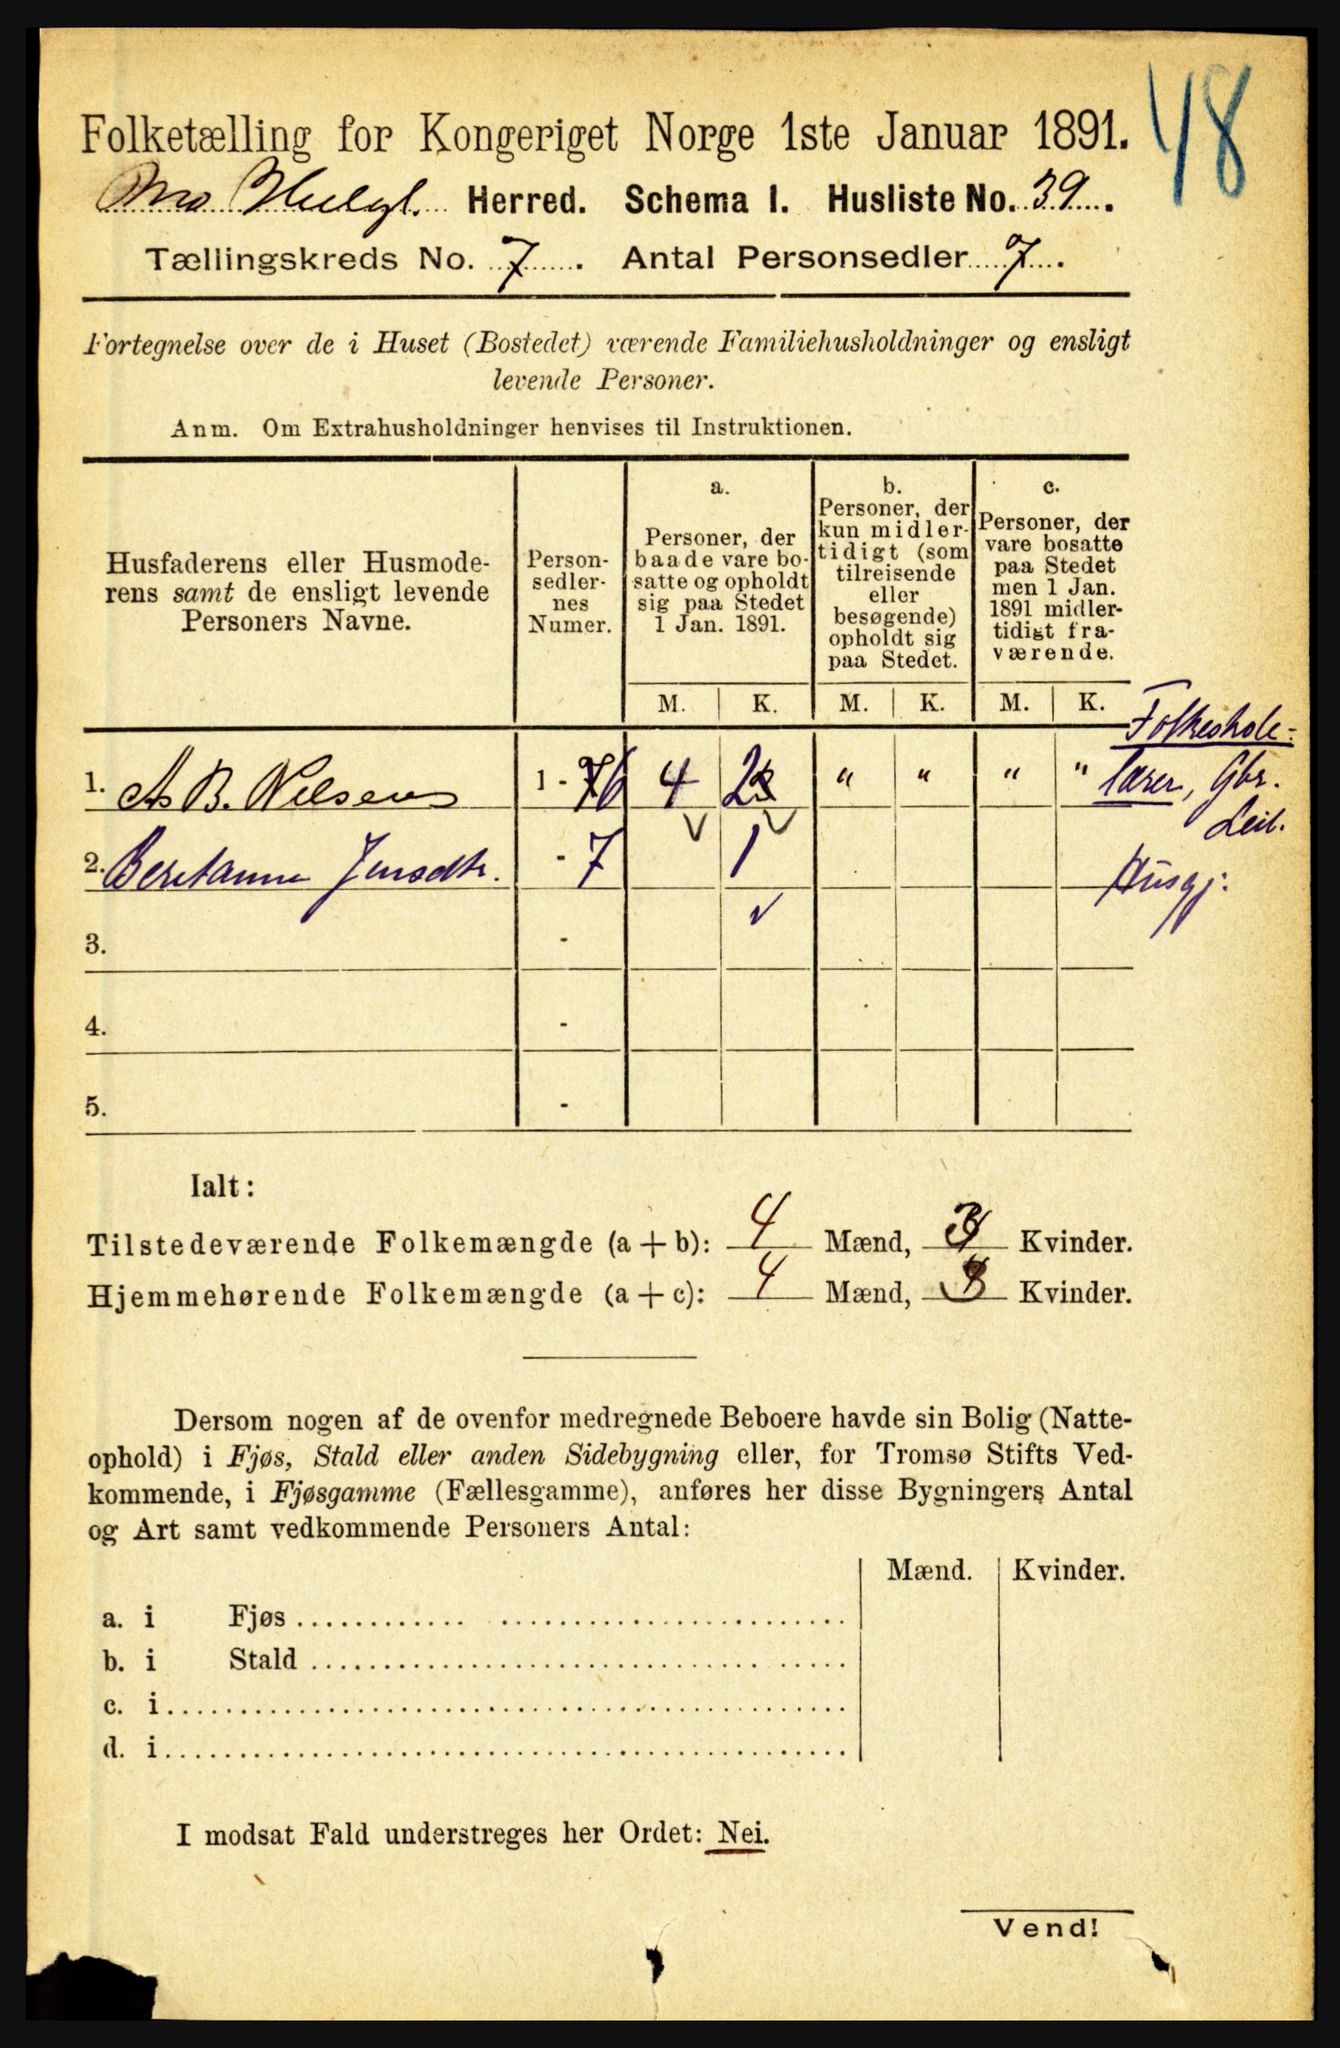 48
Folketælling for Kongeriget Norge 1ste Januar 1891.
Mo Helgl. Herred. Schema I. Husliste No. 39.
Tællingskreds No. 7. Antal Personsedler 7.
Fortegnelse over de i Huset (Bostedet) værende Familiehusholdninger og ensligt
levende Personer.
Anm. Om Extrahusholdninger henvises til Instruktionen.
Husfaderens eller Husmode-
rens samt de ensligt levende
Personers Navne.
Person-
sedler-
nes
Numer.
a.
Personer, der
baade vare bo-
satte og opholdt
sig paa Stedet
1 Jan. 1891.
b.
Personer, der
kun midler-
tidigt (som
tilreisende
eller
besøgende)
opholdt sig
paa Stedet.
c.
Personer, der
vare bosatte
paa Stedet
men 1 Jan.
1891 midler-
tidigt fra-
værende.
M. K. M. K. M. K.
1. A. B. Nilsen 1 - 6 4 2 " " " " Folkeskole-
lærer, Gbr.
Leil.
2. Beretanna Jensdtr. - 7 1 Husgj:
3. -
4. -
5. -
Ialt:
Tilstedeværende Folkemængde (a + b): 4 Mænd, 3 Kvinder.
Hjemmehørende Folkemængde (a + c): 4 Mænd, 3 Kvinder.
Dersom nogen af de ovenfor medregnede Beboere havde sin Bolig (Natte-
ophold) i Fjøs, Stald eller anden Sidebygning eller, for Tromsø Stifts Ved-
kommende, i Fjøsgamme (Fællesgamme), anføres her disse Bygningers Antal
og Art samt vedkommende Personers Antal:
Mænd. Kvinder.
a. i Fjøs
b. i Stald
c. i
d. i
I modsat Fald understreges her Ordet: Nei.
Vend!